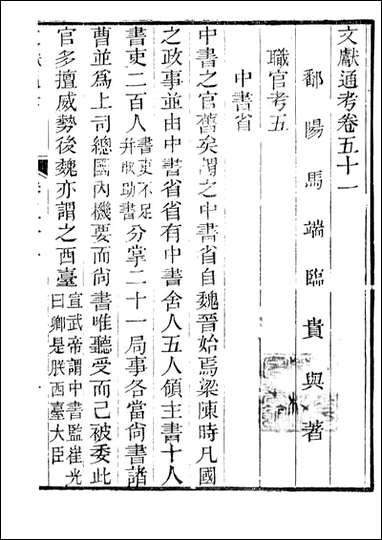 文獻通考卷五十一
鄱陽馬端臨貴與著
職官考五
中書省
中書之官舊矣謂之中書省自魏晉始焉梁陳時凡國
之政事並由中書省省有中書舍人五人領主書十人
書吏二百人書吏不足并取助書分掌二十一局事各當尚書諸
曹並為上司總國內機要而尚書唯聽受而已被委此
官多擅威勢後魏亦謂之西臺宣武帝謂中書監崔光曰卿是朕西臺大臣